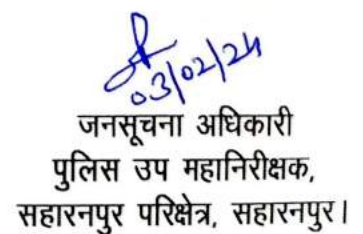 03/02/24
जनसूचना अधिकारी
पुलिस उप महानिरीक्षक,
सहारनपुर परिक्षेत्र, सहारनपुर।